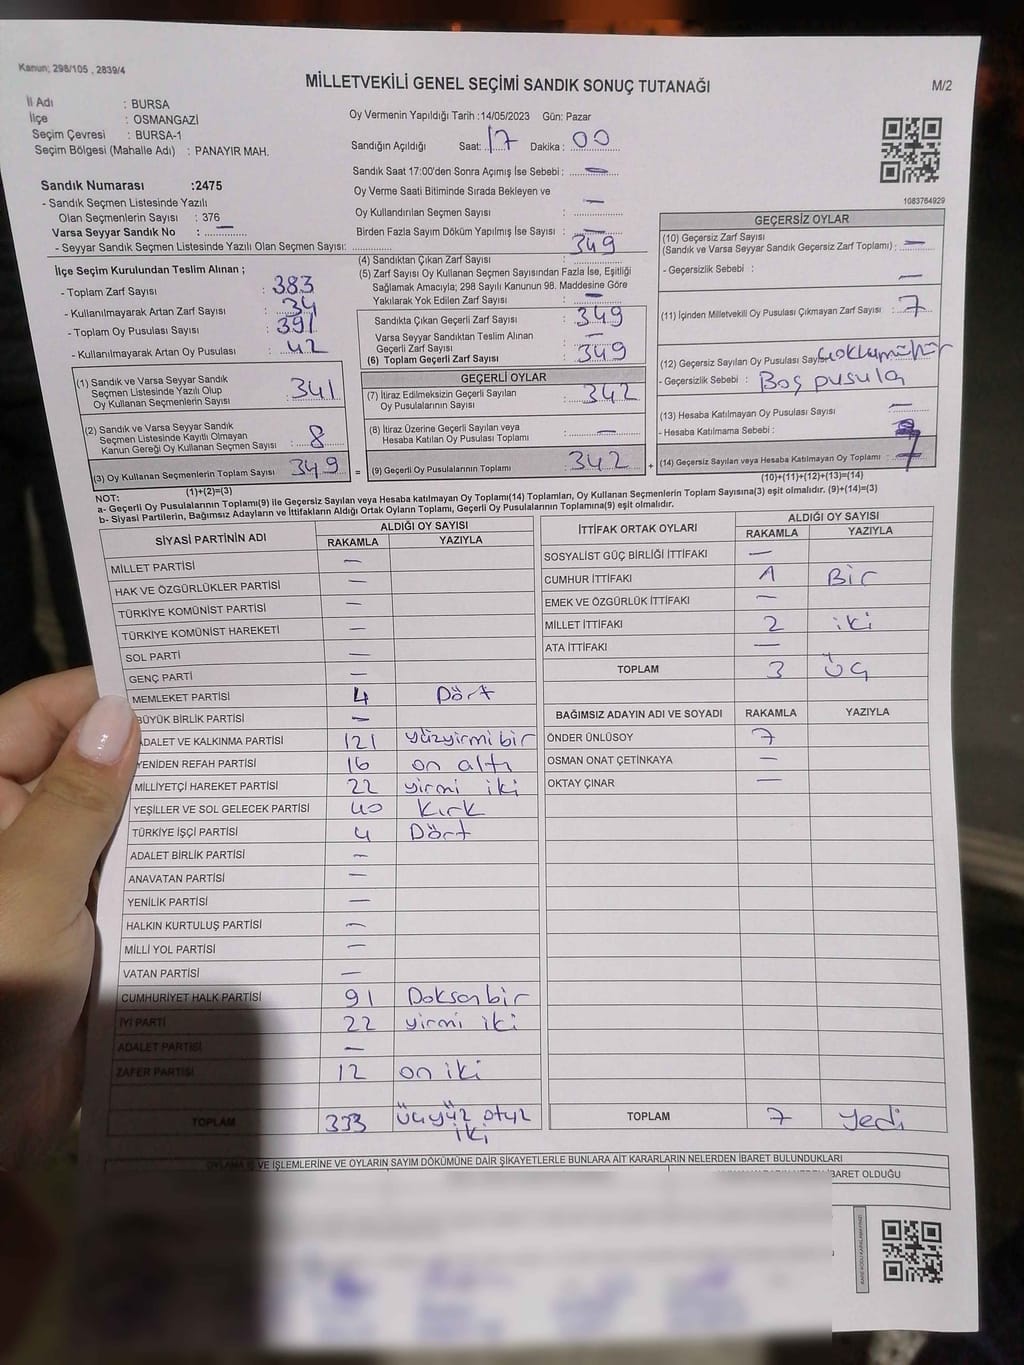 Kanun: 298/105 , 2839/4
MİLLETVEKİLİ GENEL SEÇİMİ SANDIK SONUÇ TUTANAĞI
M/2
İl Adı : BURSA
İlçe : OSMANGAZİ
Seçim Çevresi : BURSA-1
Seçim Bölgesi (Mahalle Adı) : PANAYIR MAH.
Oy Vermenin Yapıldığı Tarih :14/05/2023 Gün: Pazar
Sandığın Açıldığı Saat: 17 Dakika : 00
Sandık Saat 17:00'den Sonra Açımış İse Sebebi : —
Oy Verme Saati Bitiminde Sırada Bekleyen ve
Oy Kullandırılan Seçmen Sayısı : —
Birden Fazla Sayım Döküm Yapılmış İse Sayısı : —
1083764929
Sandık Numarası :2475
- Sandık Seçmen Listesinde Yazılı
Olan Seçmenlerin Sayısı : 376
Varsa Seyyar Sandık No : —
- Seyyar Sandık Seçmen Listesinde Yazılı Olan Seçmen Sayısı:
İlçe Seçim Kurulundan Teslim Alınan ;
- Toplam Zarf Sayısı : 383
- Kullanılmayarak Artan Zarf Sayısı : 34
- Toplam Oy Pusulası Sayısı : 391
- Kullanılmayarak Artan Oy Pusulası : 42
(1) Sandık ve Varsa Seyyar Sandık
Seçmen Listesinde Yazılı Olup
Oy Kullanan Seçmenlerin Sayısı : 341
(2) Sandık ve Varsa Seyyar Sandık
Seçmen Listesinde Kayıtlı Olmayan
Kanun Gereği Oy Kullanan Seçmen Sayısı : 8
(3) Oy Kullanan Seçmenlerin Toplam Sayısı : 349
(1)+(2)=(3)
(4) Sandıktan Çıkan Zarf Sayısı : 349
(5) Zarf Sayısı Oy Kullanan Seçmen Sayısından Fazla İse, Eşitliği
Sağlamak Amacıyla; 298 Sayılı Kanunun 98. Maddesine Göre
Yakılarak Yok Edilen Zarf Sayısı : —
Sandıkta Çıkan Geçerli Zarf Sayısı : 349
Varsa Seyyar Sandıktan Teslim Alınan
Geçerli Zarf Sayısı : —
(6) Toplam Geçerli Zarf Sayısı : 349
GEÇERLİ OYLAR
(7) İtiraz Edilmeksizin Geçerli Sayılan
Oy Pusulalarının Sayısı : 342
(8) İtiraz Üzerine Geçerli Sayılan veya
Hesaba Katılan Oy Pusulası Toplamı : —
= (9) Geçerli Oy Pusulalarının Toplamı : 342 +
GEÇERSİZ OYLAR
(10) Geçersiz Zarf Sayısı
(Sandık ve Varsa Seyyar Sandık Geçersiz Zarf Toplamı) : —
- Geçersizlik Sebebi : —
(11) İçinden Milletvekili Oy Pusulası Çıkmayan Zarf Sayısı : 7
(12) Geçersiz Sayılan Oy Pusulası
- Geçersizlik Sebebi : Boş pusula
(13) Hesaba Katılmayan Oy Pusulası Sayısı : —
- Hesaba Katılmama Sebebi :
(14) Geçersiz Sayılan veya Hesaba Katılmayan Oy Toplamı : 7
(10)+(11)+(12)+(13)=(14)
NOT:
a- Geçerli Oy Pusulalarının Toplamı(9) ile Geçersiz Sayılan veya Hesaba katılmayan Oy Toplamı(14) Toplamları, Oy Kullanan Seçmenlerin Toplam Sayısına(3) eşit olmalıdır. (9)+(14)=(3)
b- Siyasi Partilerin, Bağımsız Adayların ve İttifakların Aldığı Ortak Oyların Toplamı, Geçerli Oy Pusulalarının Toplamına(9) eşit olmalıdır.
SİYASİ PARTİNİN ADI ALDIĞI OY SAYISI
RAKAMLA YAZIYLA
MİLLET PARTİSİ —
HAK VE ÖZGÜRLÜKLER PARTİSİ —
TÜRKİYE KOMÜNİST PARTİSİ —
TÜRKİYE KOMÜNİST HAREKETİ —
SOL PARTİ —
GENÇ PARTİ —
MEMLEKET PARTİSİ 4 Dört
BÜYÜK BİRLİK PARTİSİ —
ADALET VE KALKINMA PARTİSİ 121 yüzyirmi bir
YENİDEN REFAH PARTİSİ 16 on altı
MİLLİYETÇİ HAREKET PARTİSİ 22 yirmi iki
YEŞİLLER VE SOL GELECEK PARTİSİ 40 Kırk
TÜRKİYE İŞÇİ PARTİSİ 4 Dört
ADALET BİRLİK PARTİSİ —
ANAVATAN PARTİSİ —
YENİLİK PARTİSİ —
HALKIN KURTULUŞ PARTİSİ —
MİLLİ YOL PARTİSİ —
VATAN PARTİSİ —
CUMHURİYET HALK PARTİSİ 91 Doksan bir
İYİ PARTİ 22 yirmi iki
ADALET PARTİSİ —
ZAFER PARTİSİ 12 on iki
TOPLAM 333 üçyüz otuz
iki
İTTİFAK ORTAK OYLARI ALDIĞI OY SAYISI
RAKAMLA YAZIYLA
SOSYALİST GÜÇ BİRLİĞİ İTTİFAKI —
CUMHUR İTTİFAKI 1 Bir
EMEK VE ÖZGÜRLÜK İTTİFAKI —
MİLLET İTTİFAKI 2 iki
ATA İTTİFAKI —
TOPLAM 3 üç
BAĞIMSIZ ADAYIN ADI VE SOYADI RAKAMLA YAZIYLA
ÖNDER ÜNLÜSOY 7
OSMAN ONAT ÇETİNKAYA —
OKTAY ÇINAR —
TOPLAM 7 yedi
OYLAMA İŞ VE İŞLEMLERİNE VE OYLARIN SAYIM DÖKÜMÜNE DAİR ŞİKAYETLERLE BUNLARA AİT KARARLARIN NELERDEN İBARET BULUNDUKLARI
İBARET OLDUĞU